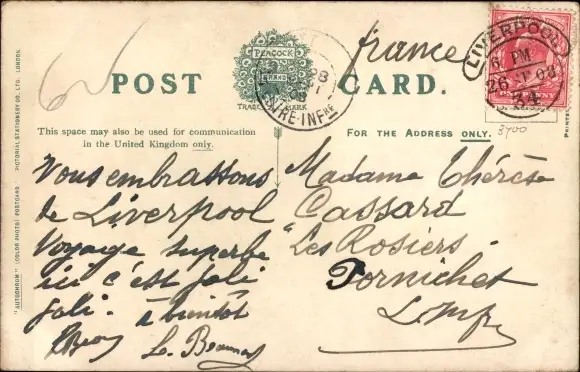 POST CARD.
PEACOCK
BRAND
TRADE MARK
france
LIVERPOOL
6. PM
26
08
34
28
08
This space may also be used for communication
in the United Kingdom only.
FOR THE ADDRESS ONLY.
3400
"AUTOCHROM" (COLOR PHOTO) POSTCARD PICTORIAL STATIONERY CO. LTD. LONDON.
Vous embrassons
de Liverpool
Voyage superbe
ici c'est joli
joli. à bientôt
Madame Thérèse
Cassard
"Les Rosiers"
Pornichet
L. Infre